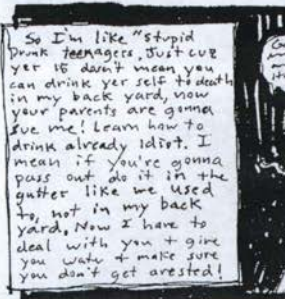 So I'm like "stupid
Drunk teenagers, Just cuz
yer 15 don't mean you
can drink yer self to death
in my back yard, now
your parents are gonna
sue me! Learn how to
drink already Idiot. I
mean if you're gonna
pass out do it in the
gutter like we used
to, not in my back
yard. Now I have to
deal with you + give
you water + make sure
you don't get arested!